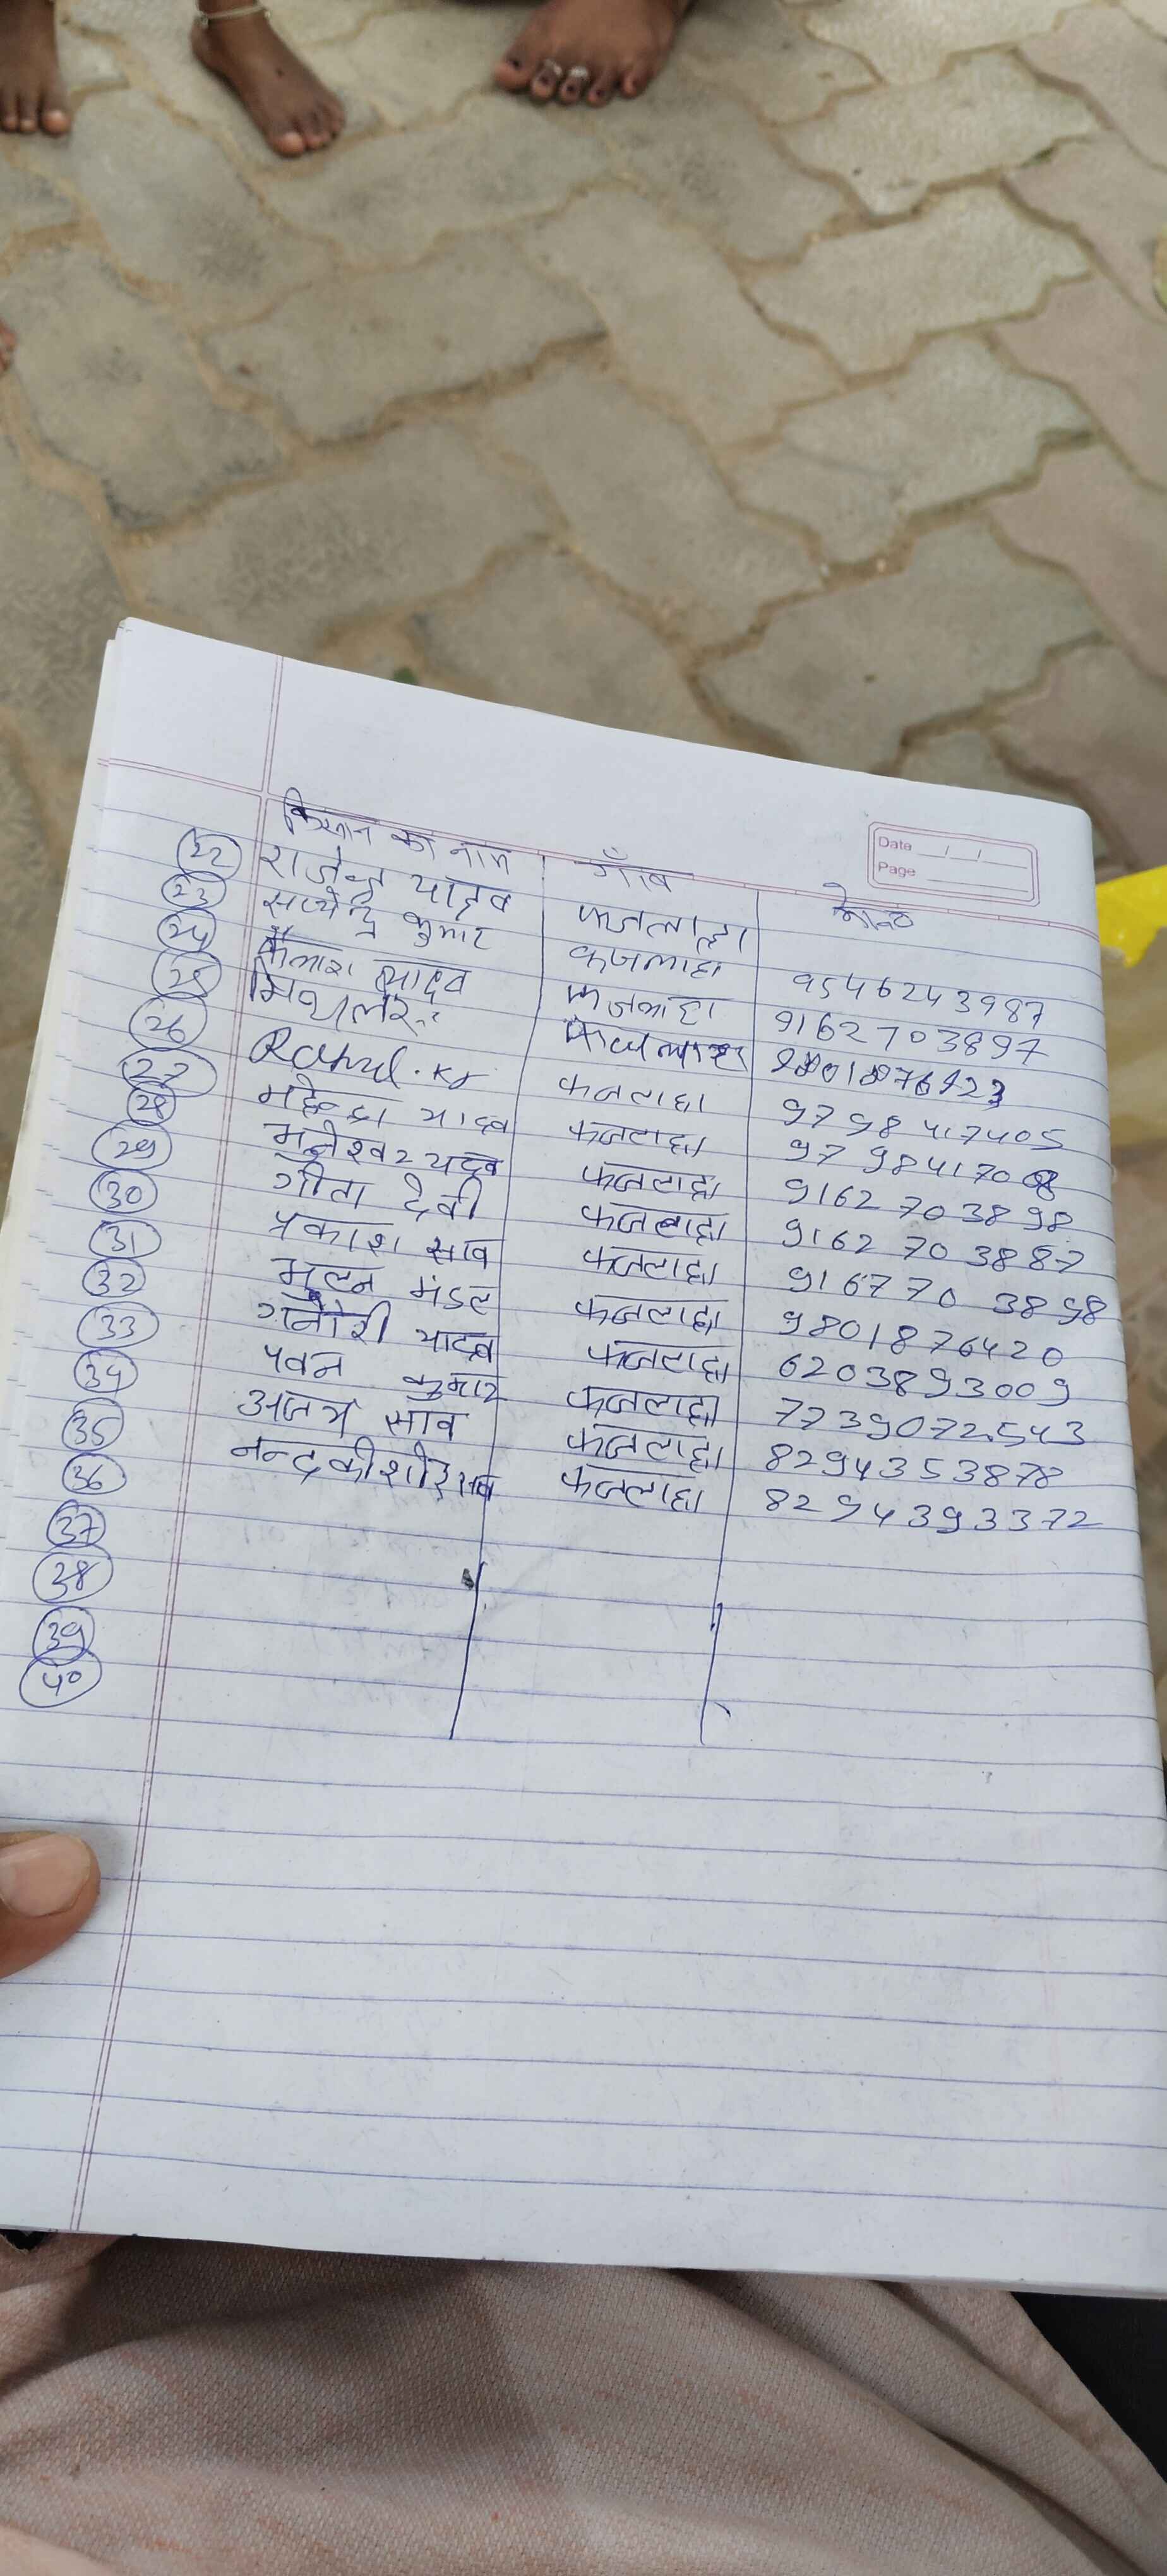 Date / /
Page
किसान का नाम गाँव मो०न०
22 राजेन्द्र यादव कजलाहा 9546243987
23 सत्येन्द्र कुमार कजलाहा 9162703897
24 कैलाश यादव कजलाहा
25 कजलाहा 9798417405
26 Rahul. Kr कजलाहा
27 महेन्द्रा यादव कजलाहा 9162703898
28 मुनेश्वर यादव कजलाहा 9162703887
29 गीता देवी कजलाहा 9167703898
30 प्रकाश साव कजलाहा 9801876420
31 मंडल कजलाहा 6203893009
32 गनौरी यादव कजलाहा 7739072543
33 पवन कुमार कजलाहा 8294353878
34 अजय साव कजलाहा 8294393372
35 नन्दकीशोर साव कजलाहा
36
37
38
39
40